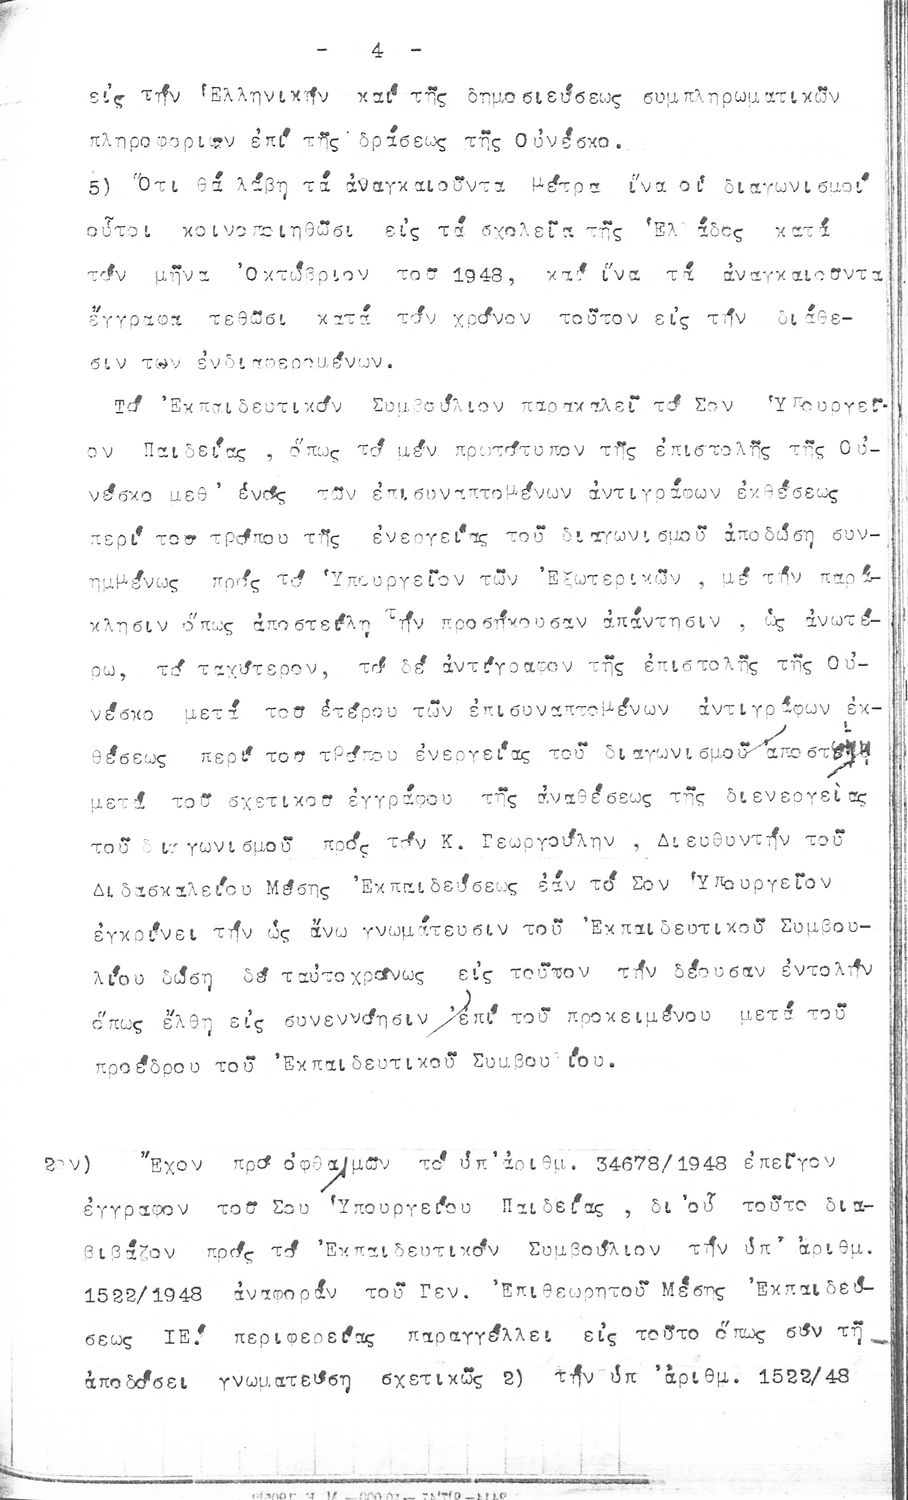 - 4 -
εἰς τήν Ἑλληνικήν καί τῆς δημοσιεύσεως συμπληρωματικῶν
πληροφοριων ἐπί τῆς δράσεως τῆς Οὐνέσκο.
5) Ὅτι θά λάβη τά ἀναγκαιοῦντα μέτρα ἵνα οἱ διαγωνισμοί
οὗτοι κοινοποιηθῶσι εἰς τά σχολεῖα τῆς Ἑλ άδος κατά
τόν μῆνα Ὀκτώβριον του 1948, καί ἵνα τά ἀναγκαιουντα
ἔγγραφα τεθῶσι κατά τόν χρόνον τοῦτον εἰς τήν διάθε-
σιν των ἐνδιαφερομένων.
Τό Ἐκπαιδευτικόν Συμβούλιον παρακαλεῖ τό Σον Ὑπουργεῖ-
ον Παιδείας , ὅπως τό μέν πρωτότυπον τῆς ἐπιστολῆς τῆς Οὐ-
νέσκο μεθ' ἑνός τῶν ἐπισυναπτομένων ἀντιγράφων ἐκθέσεως
περί του τρόπου τῆς ἐνεργείας τοῦ διαγωνισμοῦ ἀποδώση συν-
ημμένως πρός τό Ὑπουργεῖον τῶν Ἐξωτερικῶν , μέ τήν παρά-
κλησιν ὅπως ἀποστείλη τήν προσήκουσαν ἀπάντησιν , ὡς ἀνωτέ-
ρω, τό ταχύτερον, τό δέ ἀντίγραφον τῆς ἐπιστολῆς τῆς Οὐ-
νέσκο μετά του ἑτέρου τῶν ἐπισυναπτομένων ἀντιγράφων ἐκ-
θέσεως περί του τρόπου ἐνεργείας τοῦ διαγωνισμοῦ ἀποστείλη
μετά τοῦ σχετικου ἐγγράφου τῆς ἀναθέσεως τῆς διενεργείας
τοῦ διαγωνισμοῦ πρός τόν Κ. Γεωργούλην , Διευθυντήν τοῦ
Διδασκαλείου Μέσης Ἐκπαιδεύσεως ἐάν τό Σον Ὑπουργεῖον
ἐγκρίνει τήν ὡς ἄνω γνωμάτευσιν τοῦ Ἐκπαιδευτικοῦ Συμβου-
λίου δώση δέ ταὐτοχρόνως εἰς τοῦτον τήν δέουσαν ἐντολήν
ὅπως ἔλθη εἰς συνεννόησιν ἐπί τοῦ προκειμένου μετά τοῦ
προέδρου τοῦ Ἐκπαιδευτικοῦ Συμβου ίου.
2ον) Ἔχον πρό ὀφθαλμῶν τό ὑπ'ἀριθμ. 34678/1948 ἐπεῖγον
ἔγγραφον του Σου Ὑπουργείου Παιδείας , δι'οὗ τοῦτο δια-
βιβάζον πρός τό Ἐκπαιδευτικόν Συμβούλιον τήν ὑπ' ἀριθμ.
1522/1948 ἀναφοράν τοῦ Γεν. Ἐπιθεωρητοῦ Μέσης Ἐκπαιδεύ-
σεως ΙΕ! περιφερείας παραγγέλλει εἰς τοῦτο ὅπως σύν τῆ
ἀποδόσει γνωματεύση σχετικῶς 2) τήν ὑπ ἀριθμ. 1522/48